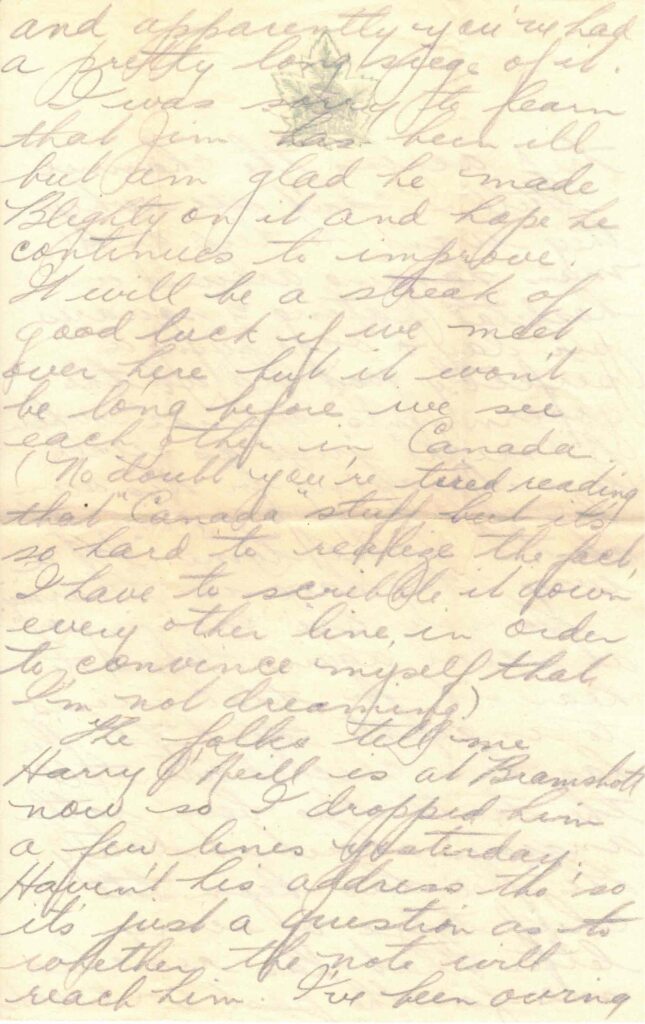 and apparently you've had
a pretty long siege of it.
I was sorry to learn
that Jim has been ill
but am glad he made
Blighty on it and hope he
continues to improve.
It will be a streak of
good luck if we meet
over here but it won't
be long before we see
each other in Canada.
(No doubt you're tired reading
that "Canada" stuff but it's
so hard to realize the fact,
I have to scribble it down
every other line, in order
to convince myself that
I'm not dreaming)
The folks tell me
Harry O'Neill is at Bramshott
now so I dropped him
a few lines yesterday.
Haven't his address tho' so
it's just a question as to
whether the note will
reach him. I've been owing